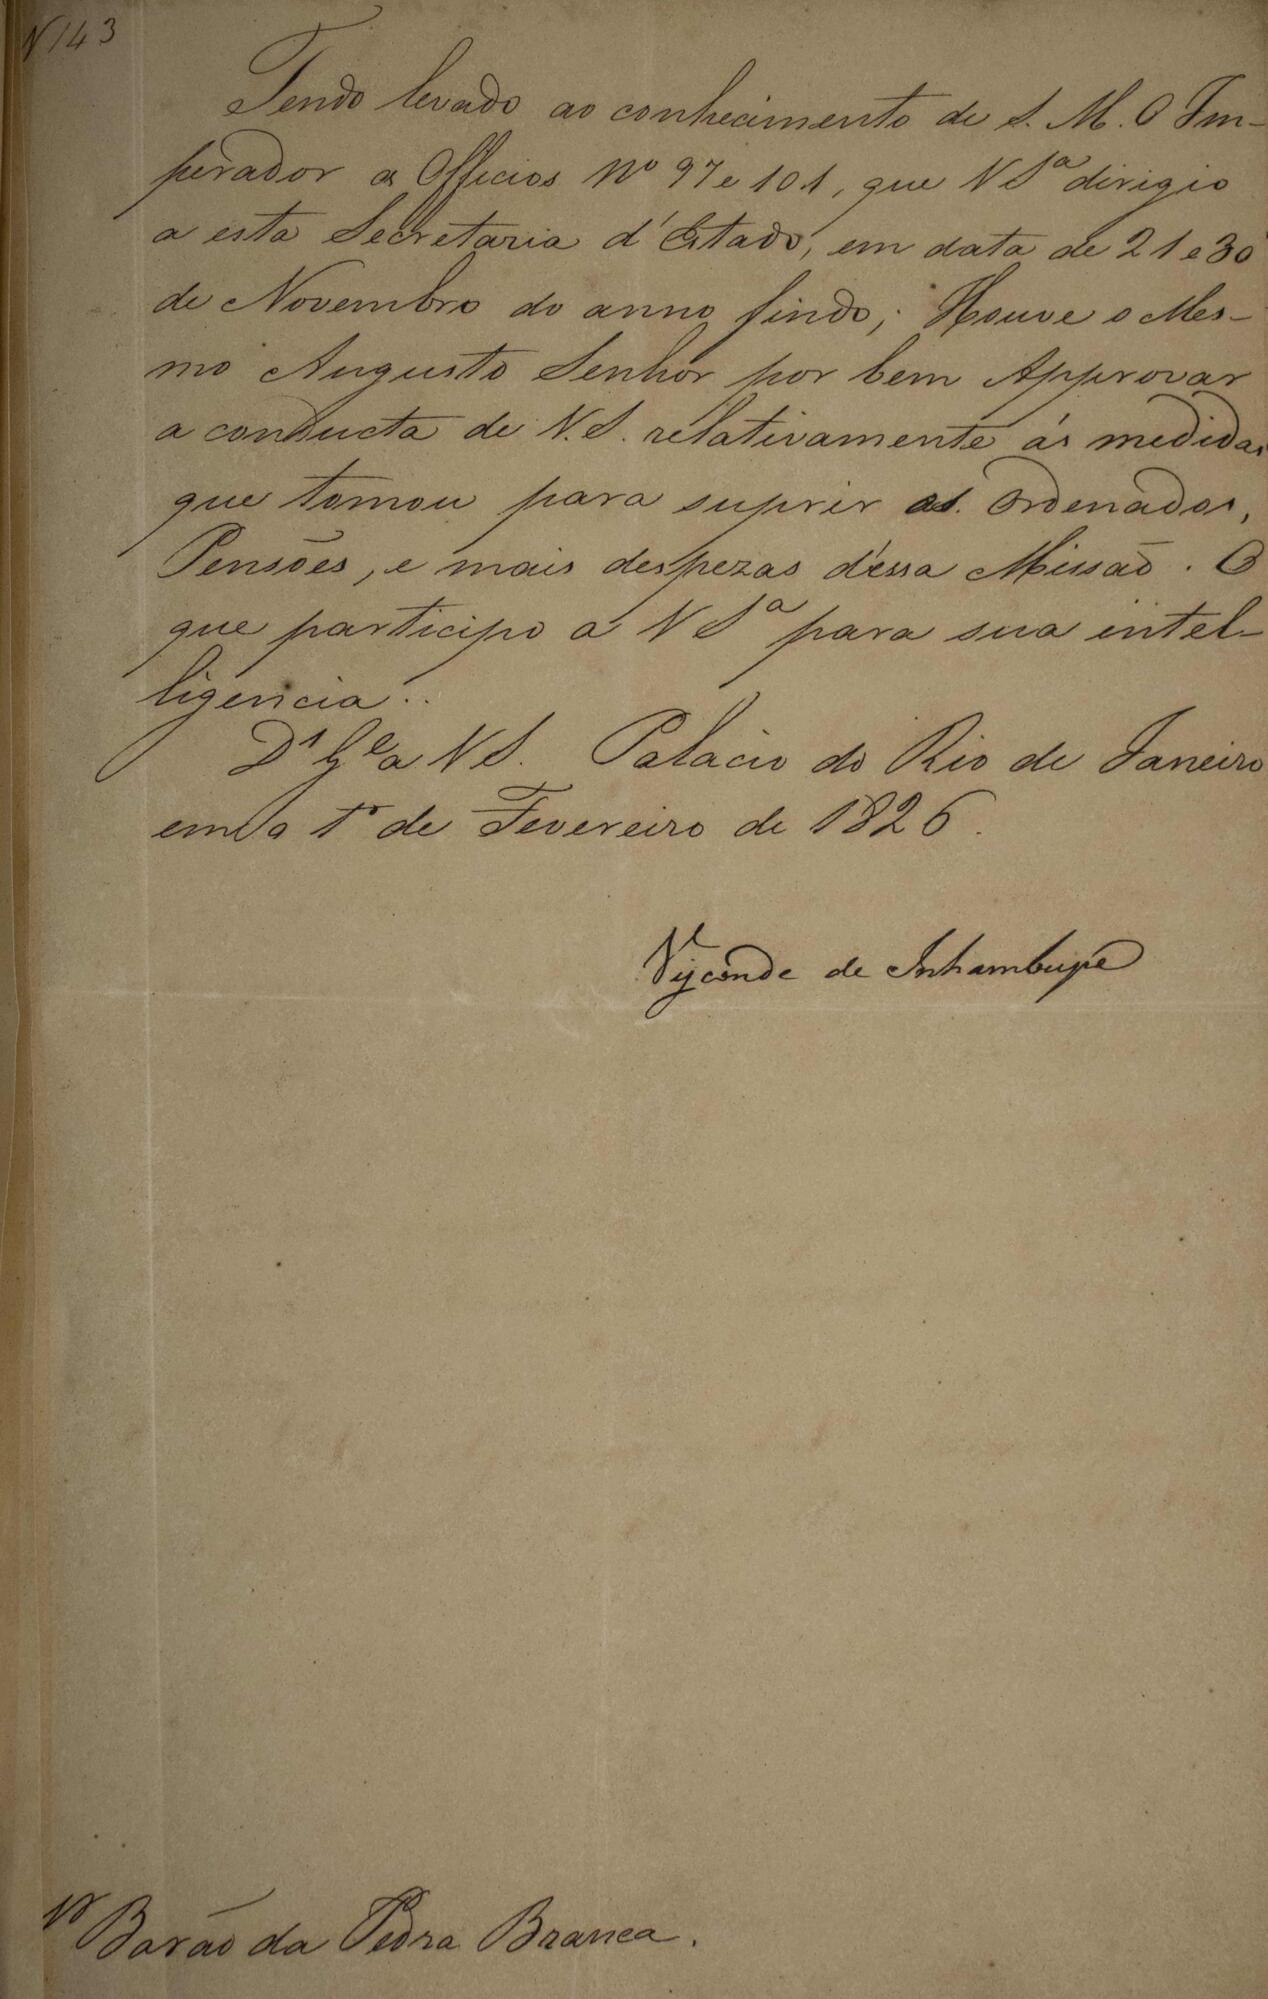 N 143
Tendo levado ao conhecimento de S. M. O Im-
perador os Officios Nº 97 e 101, que V Sª dirigio
a esta Secretaria d'Estado, em data de 21 e 30
de Novembro do anno findo; Houve o Mes-
mo Augusto Senhor por bem Approvar
a conducta de V. S. relativamente ás medidas
que tomou para suprir os Ordenados,
Pensões, e mais despezas déssa Missão. O
que participo a V Sª para sua intel-
ligencia..
Dˢ Gᵉ a V S. Palacio do Rio de Janeiro
em o 1º de Fevereiro de 1826.
Visconde de Inhambupe
Barão da Pedra Branca.